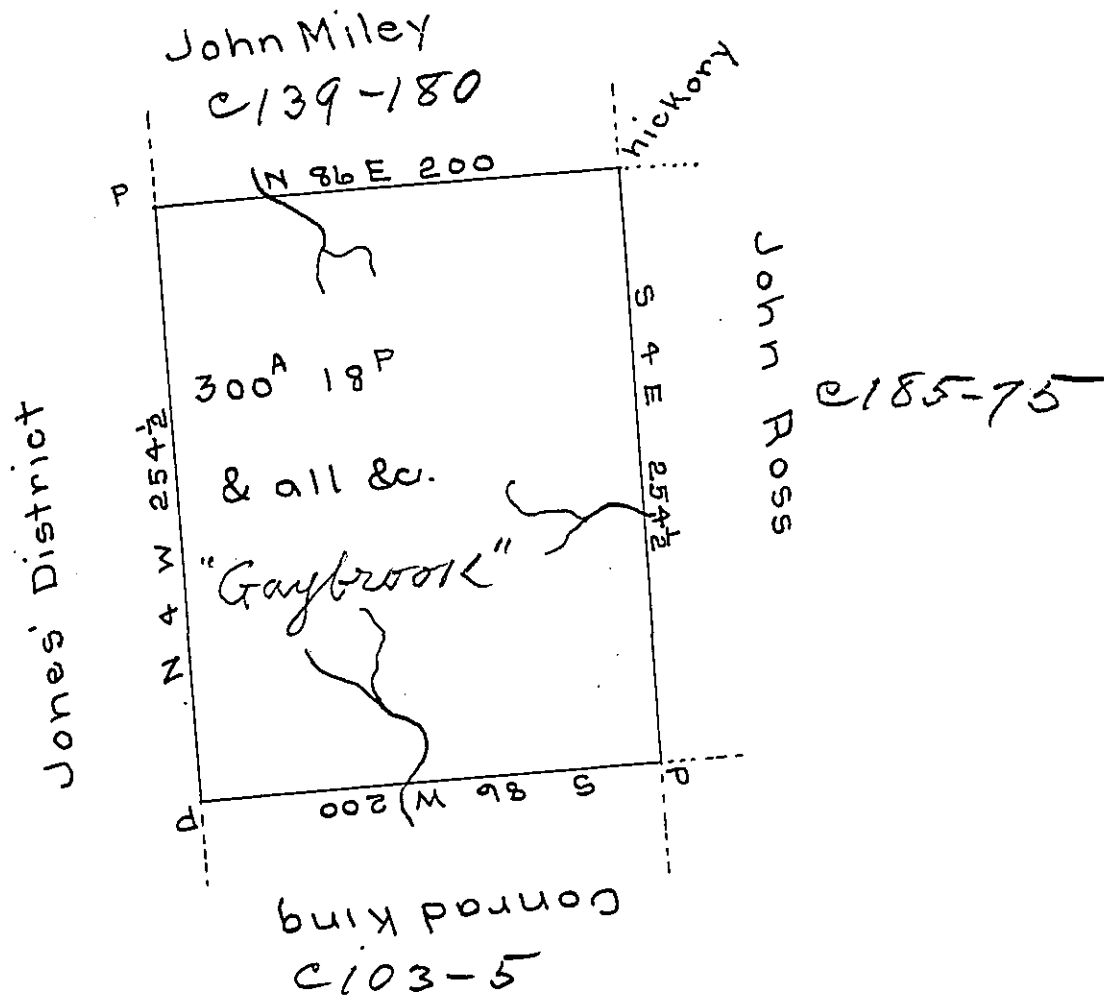 John Miley
C139-180
hickory
P
N 86 E 200
S 4 E 254½
John Ross
C185-75
300ᴬ 18ᴾ
& all &c.
"Gaybrook"
Jones' District
N 4 W 254½
P
S 86 W 200
P
Conrad King
C103-5